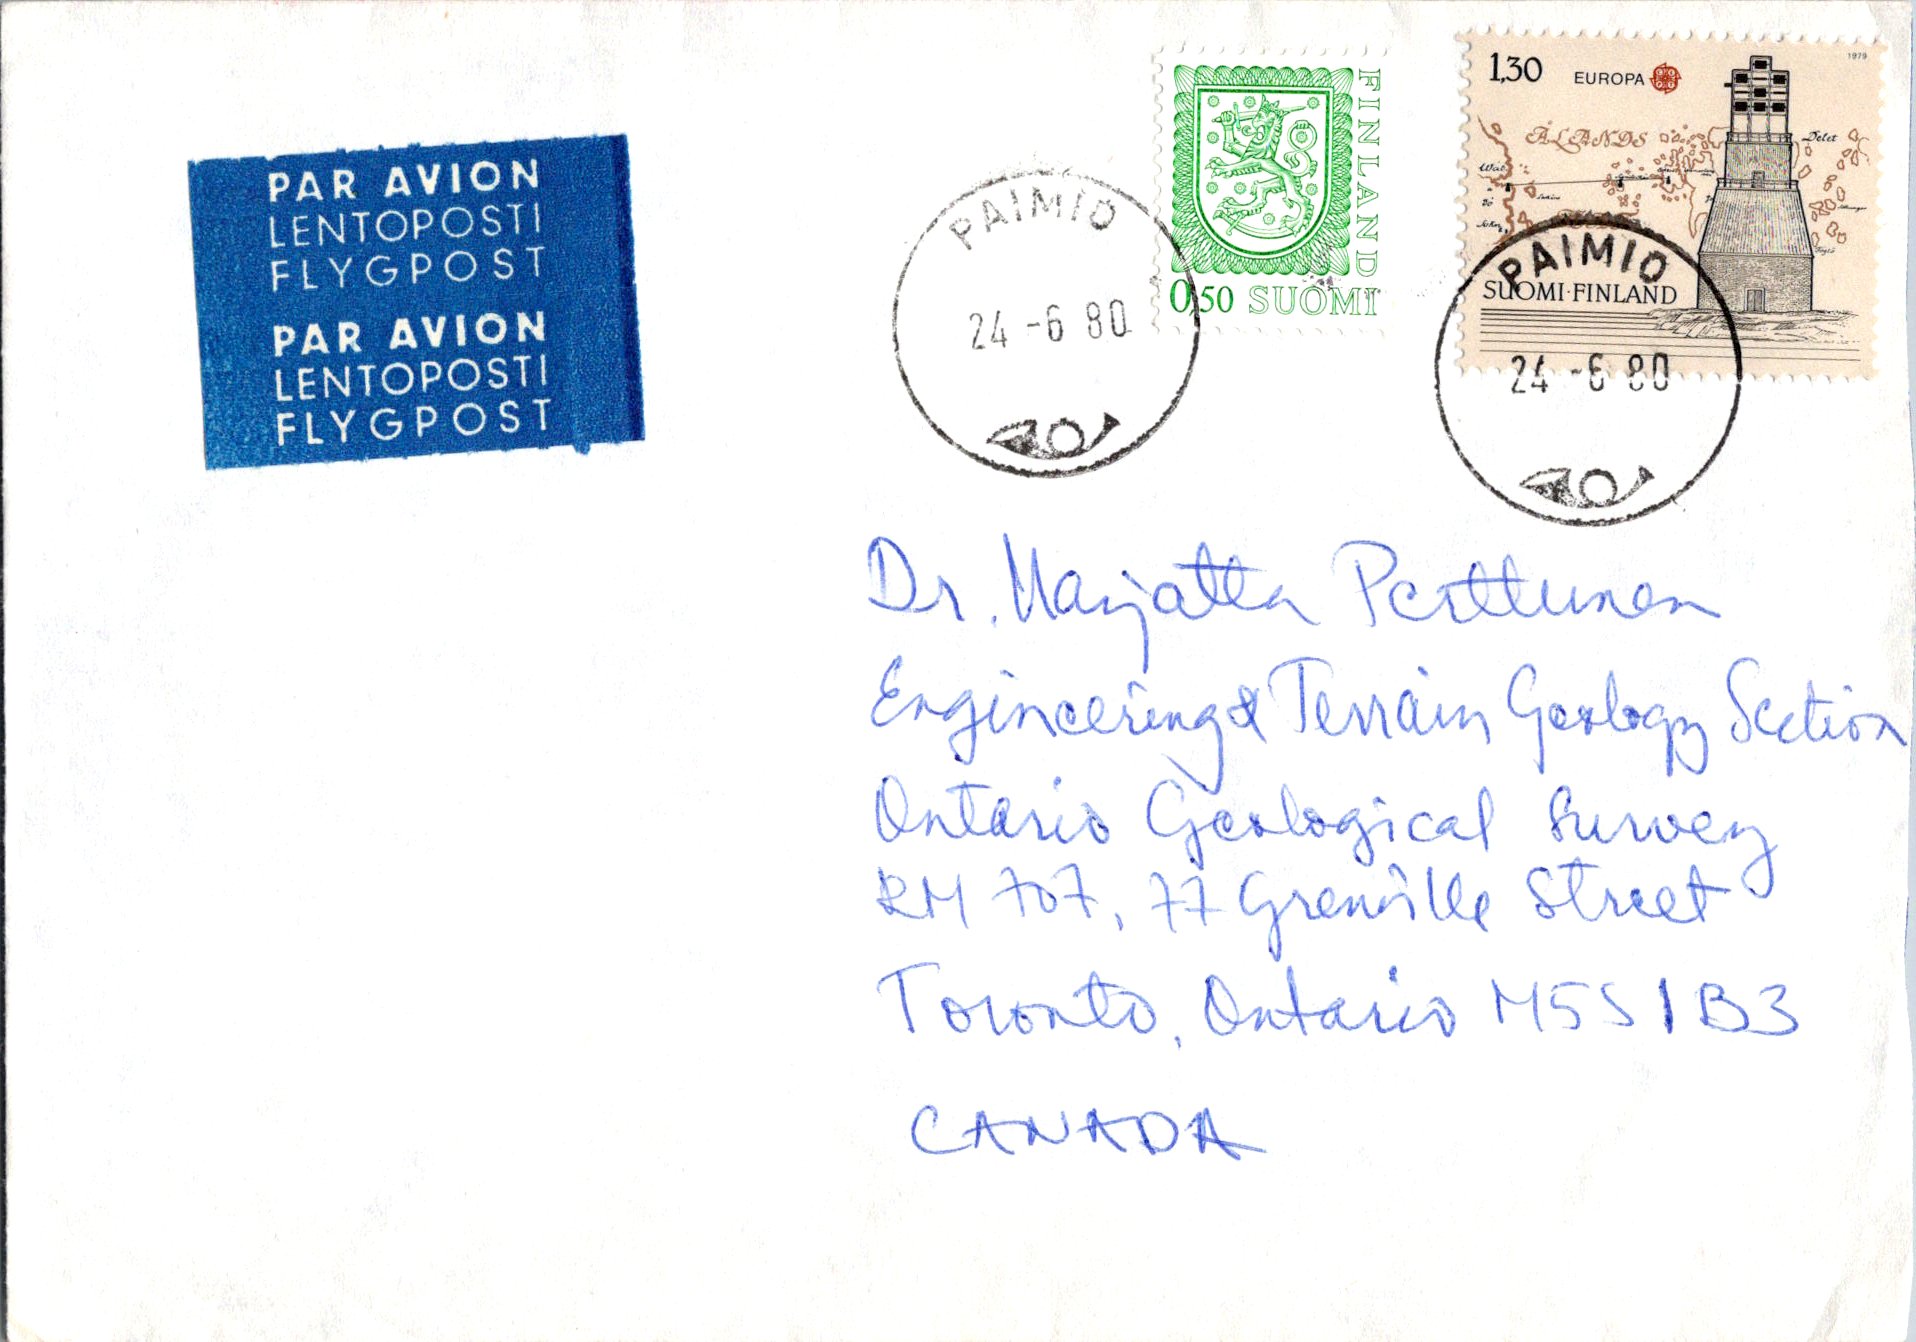 PAR AVION
LENTOPOSTI
FLYGPOST
PAR AVION
LENTOPOSTI
FLYGPOST
FINLAND
0,50 SUOMI
1,30 EUROPA
1979
ÅLANDS
Delet
SUOMI·FINLAND
PAIMIO
24 -6 80
PAIMIO
24 -6 80
Dr. Marjatta Perttunen
Engineering & Terrain Geology Section
Ontario Geological Survey
RM 707, 77 Grenville Street
Toronto, Ontario M5S 1B3
CANADA